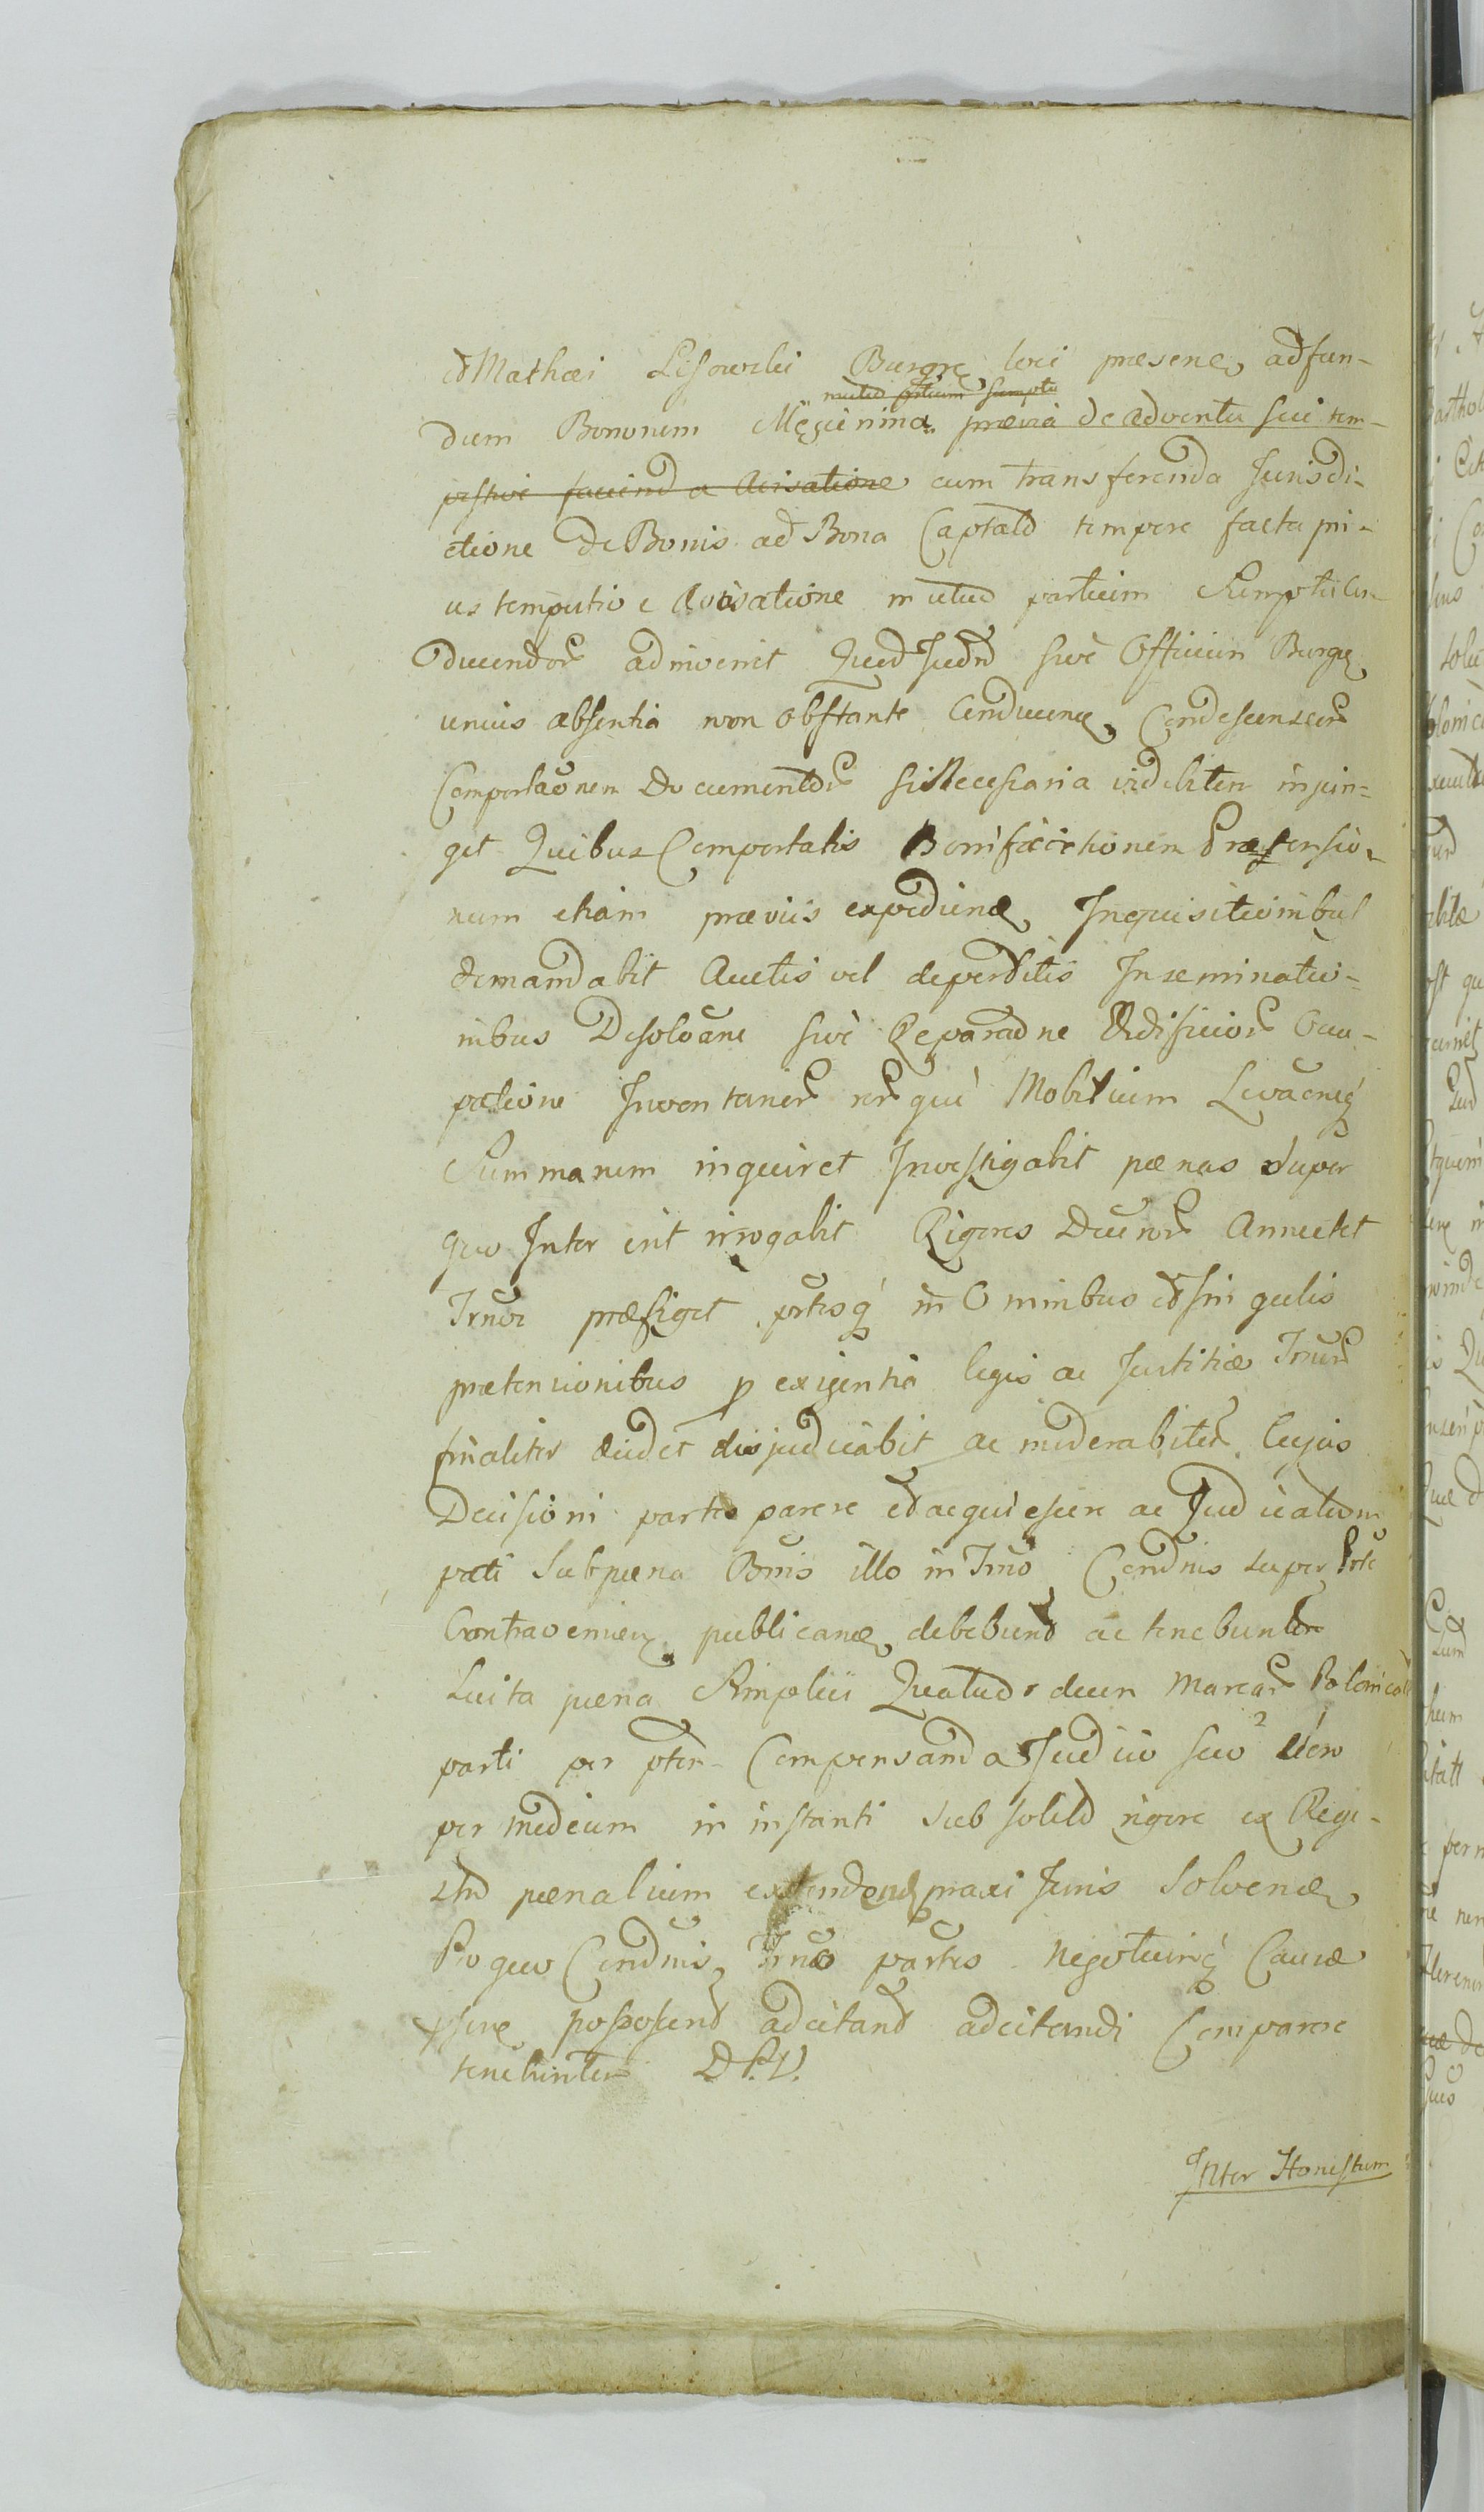 et Mathæi Lisowski Burgr loci præsene, ad fun-
mutuo partium sumptu
dum Bonorum Męcinina prævia de adventu sui tem-
pestive faciend a avisatione cum transferenda Jurisdi-
ctione de Bonis ad Bona Captald tempore facta pri-
us tempestive avisatione mutuo partium Sumptu Con
ducendor adinvenit Quod Judm sive Officium Burge
unius absentia non obstante Conducene, Condescensor
Comportaonem Documentor si Necessaria videbitur injun-
get Quibus Comportatis Bonificationem Prætensio-
num etiam præviis expediene, Inquisitionibus
demandabit Auctis vel deperditis Inseminatio-
nibus Desolaone sive Reparaone Ædificior Occu-
patione Inventarior rerqué Mobilium Levaoneq
Summarum inquiret Investigabit pœnas super
quo Inter erit irrogabit Rigores Decretor Annectet
Trnos præfiget prtesq in Omnibus et Singulis
prætensionibus p exigentia legis ac Justitiæ Trnor
finaliter audiet dijudicabit ac moderabiter Cujus
Decisioni partes parere et acquiescere ac Judicatum
pati Sub pœna Bnnis illo in Trno Condnis super prte
Contravenien publicane, debebunt ac tenebuntur
Luita pœna Simplici Quatuordecim Marcar Polonical
parti per pten Compensanda Judicio suo vero
per medium in instanti sub solild rigore ex Regi-
stro pœnalium extendend praxi Juris Solvene
Pro quo Condnis Trno partes negotiumq Causæ
pssive possosiend adcitand adcitandi Comparere
tenebuntur D. P. V.
Inter Honestum